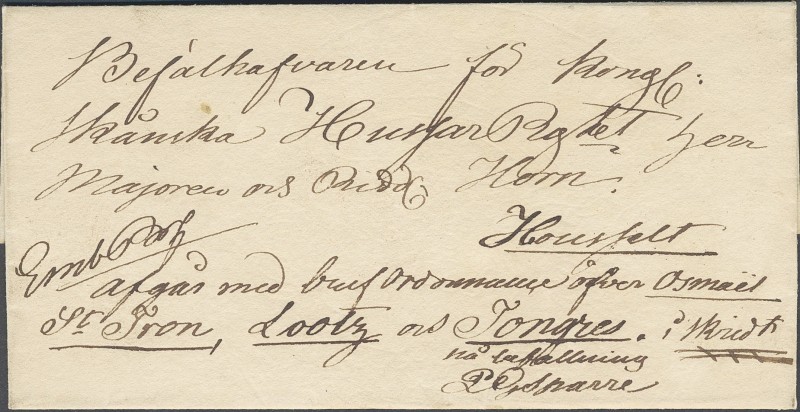 Befälhafvaren för Kongl:
Skånska Hussar Rgtet Herr
Majoren och Ridd Horn.
Housselt
afgår med bref Ordonnance öfver Osmaël
St Tron, Lootz och Tongres. i skridt
på befallning
Sparre